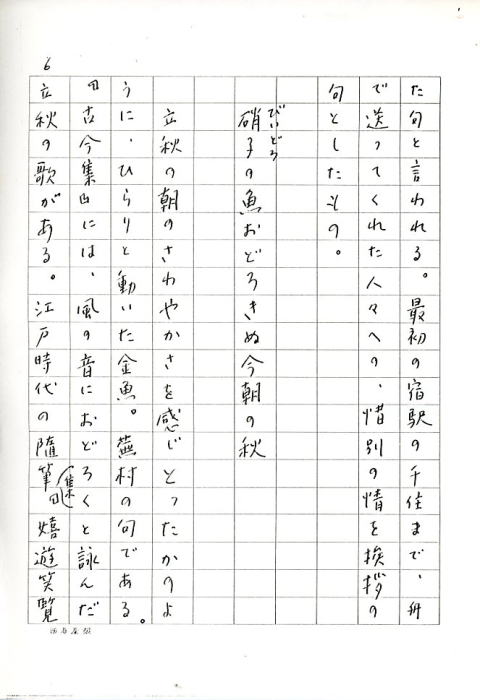 6
た句と言われる。最初の宿駅の千住まで、舟
で送ってくれた人々への、惜別の情を挨拶の
句としたもの。
びいどろ
硝子の魚おどろきぬ今朝の秋
立秋の朝のさわやかさを感じとったかのよ
うに、ひらりと動いた金魚。蕪村の句である。
『古今集』には、風の音におどろくと詠んだ
立秋の歌がある。江戸時代の随筆集『嬉遊笑覧